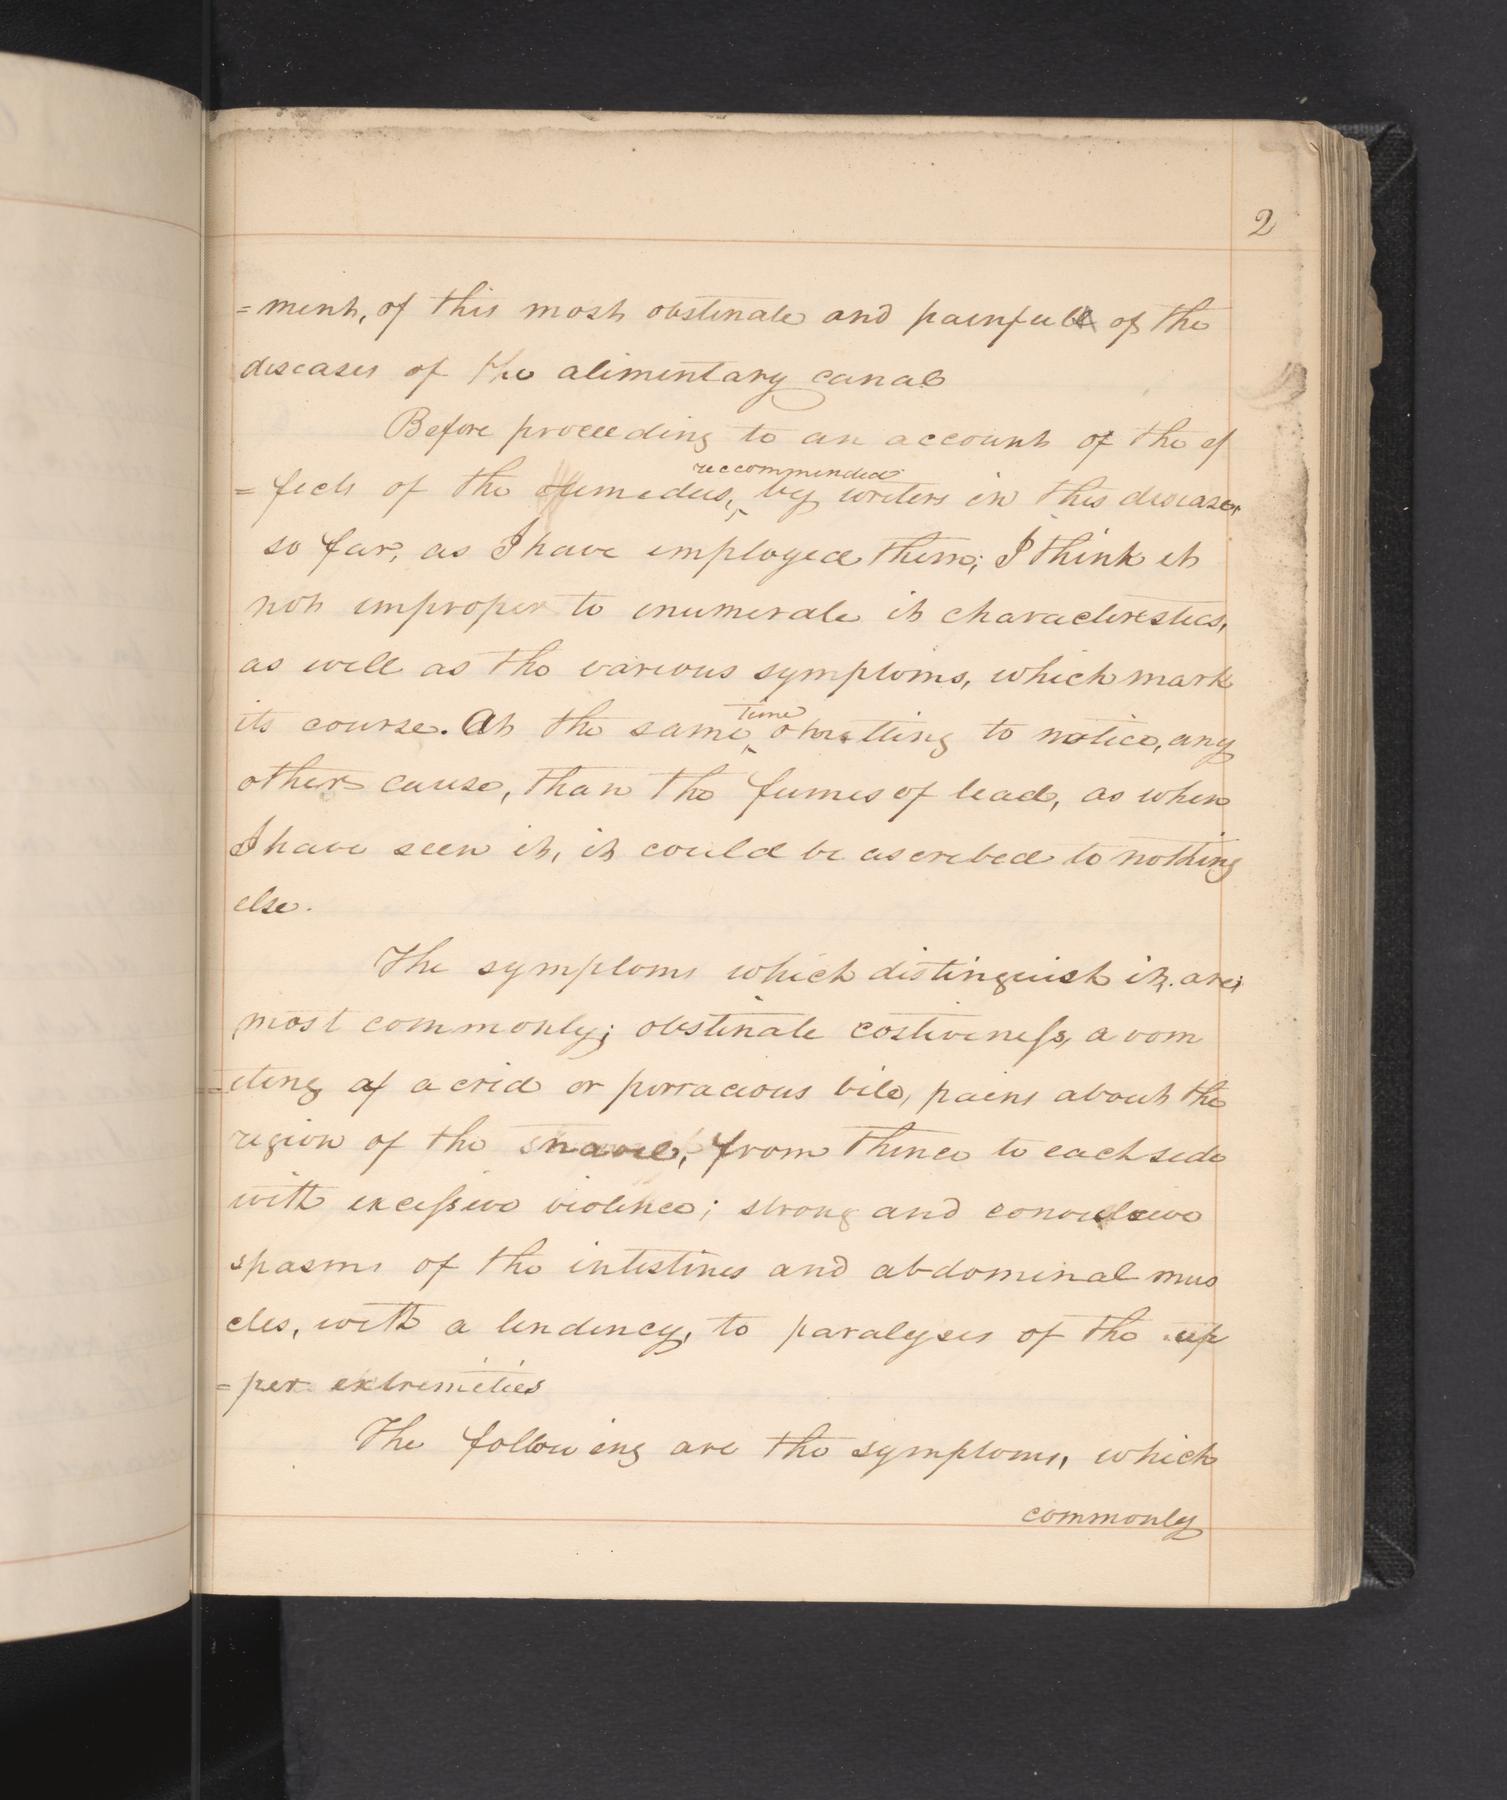 2
=ment, of this most obstinate and painful of the
diseases of the alimentary canal
Before proceeding to an account of the ef
=fects of the remedies, recommended by writers in this disease,
so far, as I have employed them; I think it
not improper to enumerate it characteristics,
as well as the various symptoms, which mark
its course. At the same time omitting to notice, any
other cause, than the fumes of lead, as when
I have seen it, it could be ascribed to nothing
else.
The symptoms which distinguish it, are;
most commonly; obstinate costiveness, a vom
=iting of acrid or porracious bile, pains about the
region of the navel, from thence to each side
with excessive violence; strong and convulsive
spasms of the intestines and abdominal mus
cles, with a tendency, to paralysis of the up
=per extremities
The following are the symptoms, which
commonly